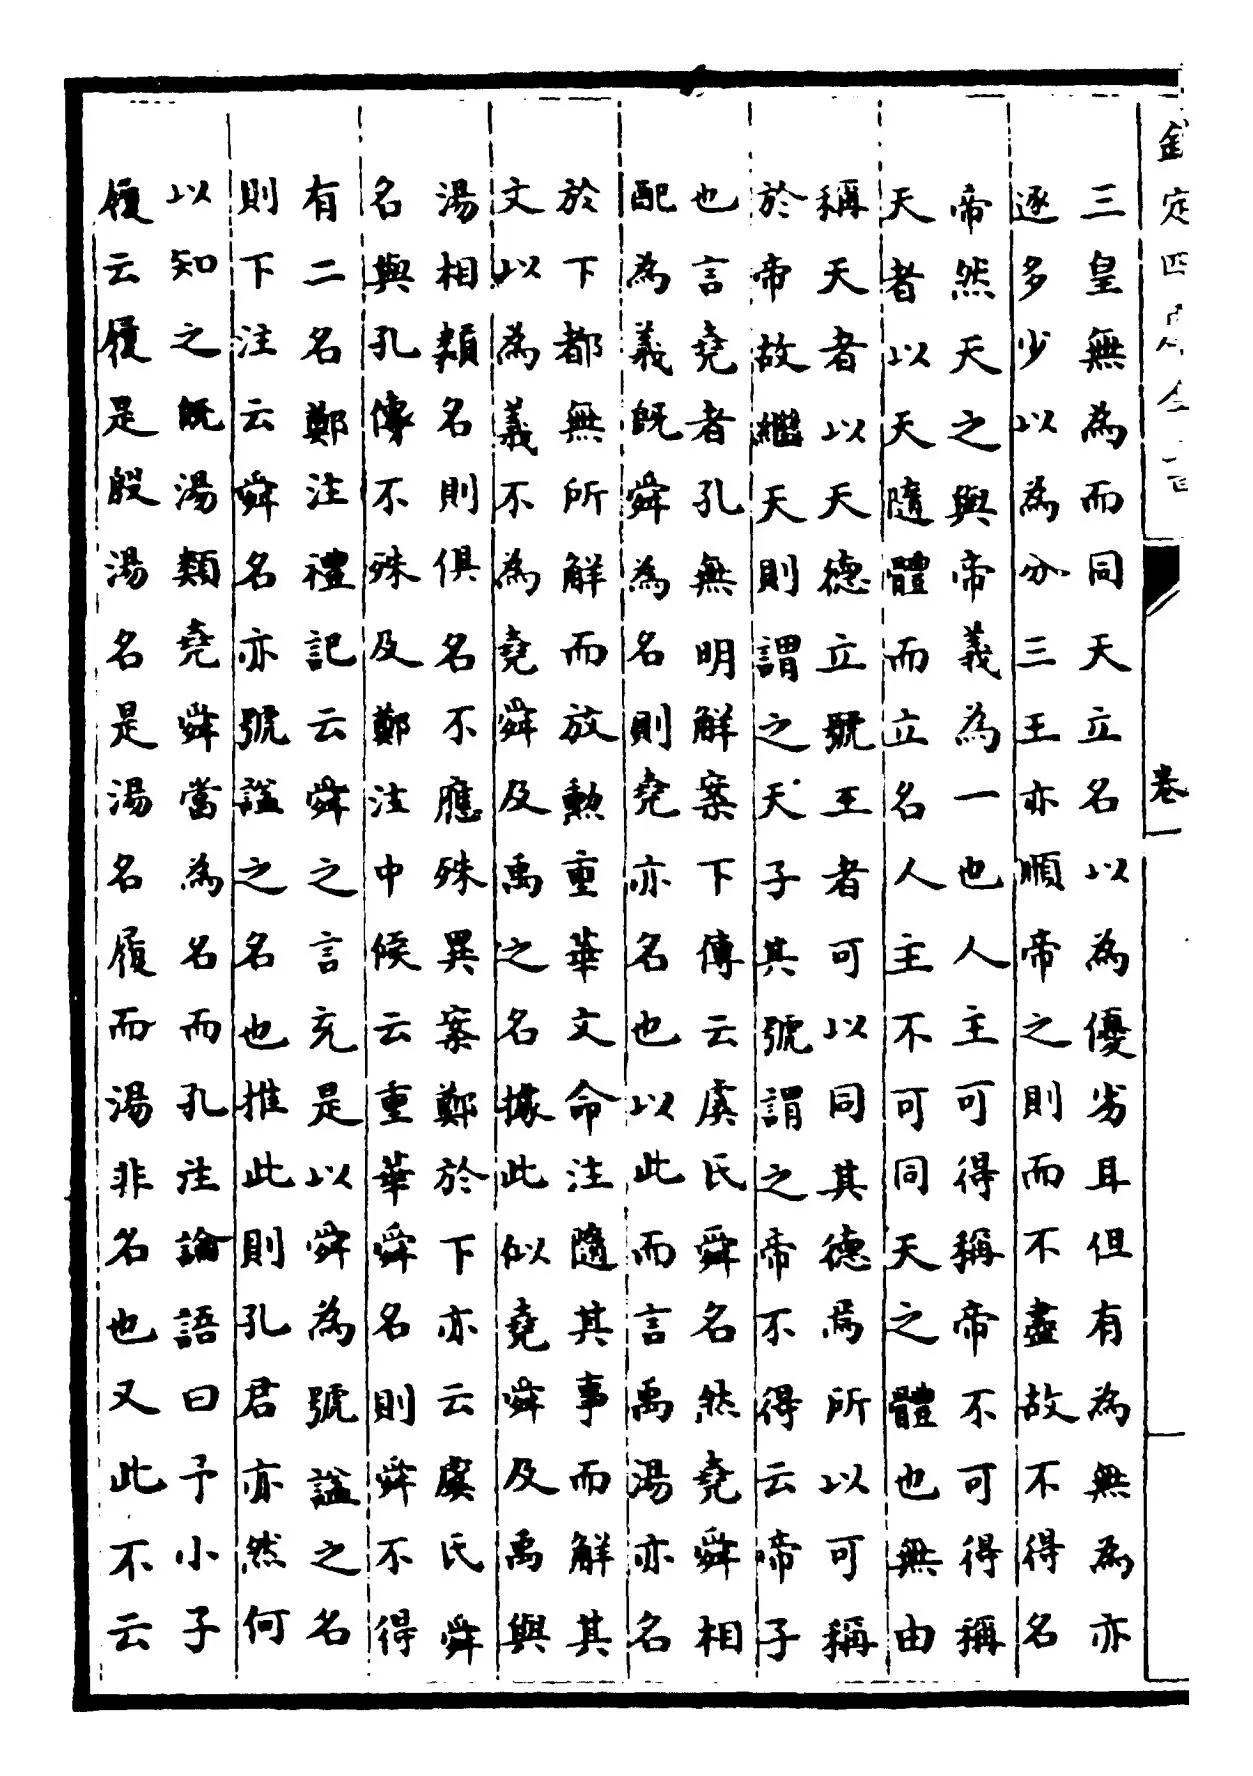 欽定四庫全書
卷一
三皇無為而同天立名以為優劣耳但有為無為亦
逐多少以為分三王亦順帝之則而不盡故不得名
帝然天之與帝義為一也人主可得稱帝不可得稱
天者以天隨體而立名人主不可同天之體也無由
稱天者以天德立號王者可以同其德焉所以可稱
於帝故繼天則謂之天子其號謂之帝不得云帝子
也言堯者孔無明解案下傳云虞氏舜名然堯舜相
配為義既舜為名則堯亦名也以此而言禹湯亦名
於下都無所解而放勲重華文命注隨其事而解其
文以為義不為堯舜及禹之名據此似堯舜及禹與
湯相類名則俱名不應殊異案鄭於下亦云虞氏舜
名與孔傳不殊及鄭注中候云重華舜名則舜不得
有二名鄭注禮記云舜之言充是以舜為號諡之名
則下注云舜名亦號諡之名也推此則孔君亦然何
以知之既湯類堯舜當為名而孔注論語曰予小子
履云履是殷湯名是湯名履而湯非名也又此不云